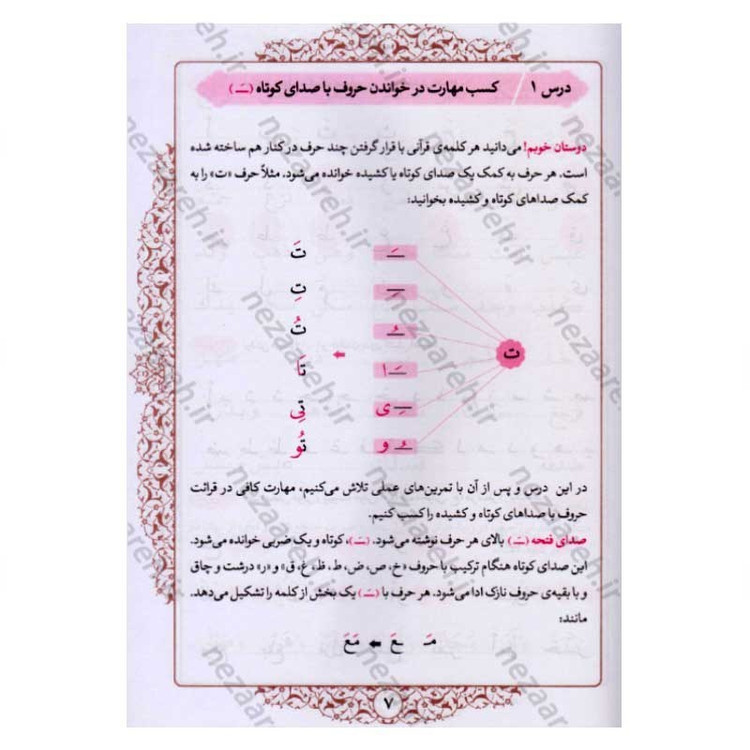 درس ۱ / کسب مهارت در خواندن حروف با صدای کوتاه (ـَـ)
دوستان خوبم! می‌دانید هر کلمه‌ی قرآنی با قرار گرفتن چند حرف در کنار هم ساخته شده
است. هر حرف به کمک یک صدای کوتاه یا کشیده خوانده می‌شود. مثلاً حرف «ت» را به
کمک صداهای کوتاه و کشیده بخوانید:
ت
ـَـ تَ
ـِـ تِ
ـُـ تُ
ـَـا تَا
ـِـی تِی
ـُـو تُو
در این درس و پس از آن با تمرین‌های عملی تلاش می‌کنیم، مهارت کافی در قرائت
حروف با صداهای کوتاه و کشیده را کسب کنیم.
صدای فتحه (ـَـ) بالای هر حرف نوشته می‌شود. (ـَـ)، کوتاه و یک ضربی خوانده می‌شود.
این صدای کوتاه هنگام ترکیب با حروف «خ، ص، ض، ط، ظ، غ، ق» و «ر» درشت و چاق
و با بقیه‌ی حروف نازک ادا می‌شود. هر حرف با (ـَـ) یک بخش از کلمه را تشکیل می‌دهد.
مانند:
مَـ ـعَ ← مَعَ
۷
nezaareh.ir